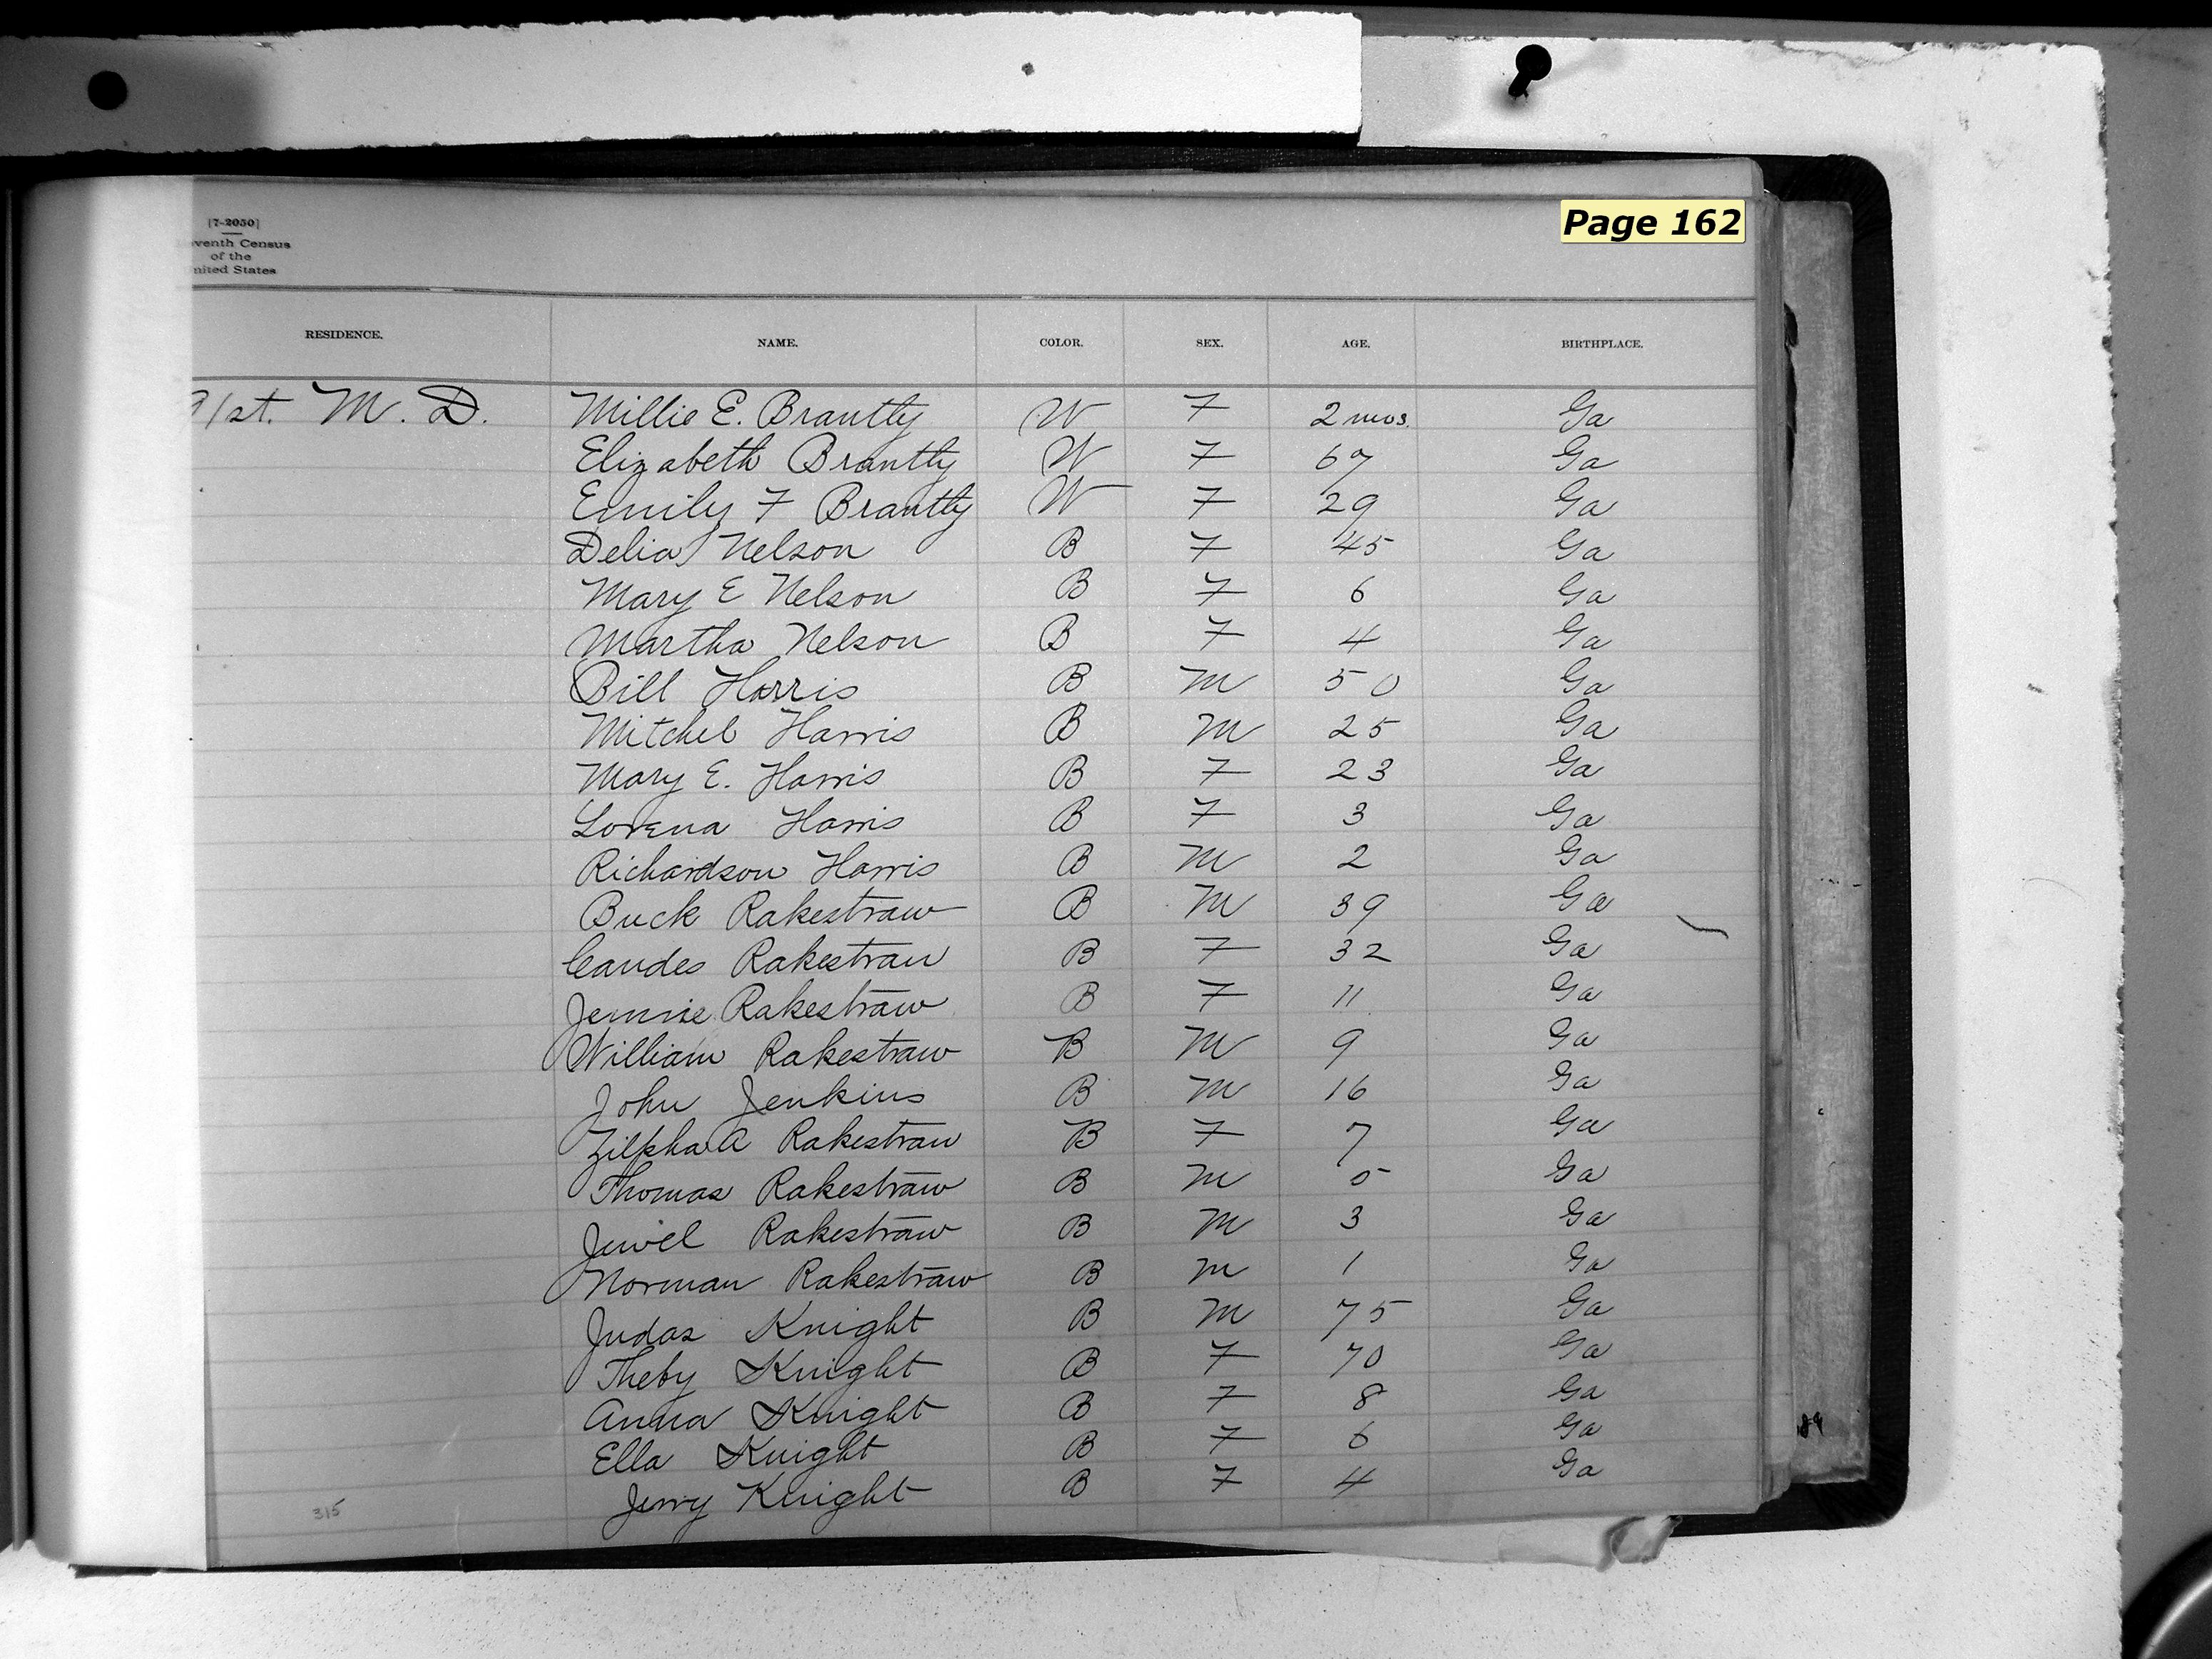 Page 162
[7-2050]
venth Census
of the
nited States
RESIDENCE. NAME. COLOR. SEX. AGE. BIRTHPLACE.
91st. M. D. Millie E. Brantly W F 2 mos. Ga
Elizabeth Brantly W F 67 Ga
Emily F Brantly W F 29 Ga
Delia Nelson B F 45 Ga
Mary E Nelson B F 6 Ga
Martha Nelson B F 4 Ga
Bill Harris B M 50 Ga
Mitchel Harris B M 25 Ga
Mary E. Harris B F 23 Ga
Lorena Harris B F 3 Ga
Richardson Harris B M 2 Ga
Buck Rakestraw B M 39 Ga
Candes Rakestraw B F 32 Ga
Jennie Rakestraw B F 11 Ga
William Rakestraw B M 9 Ga
John Jenkins B M 16 Ga
Zilpha A Rakestraw B F 7 Ga
Thomas Rakestraw B M 5 Ga
Jewel Rakestraw B M 3 Ga
Norman Rakestraw B M 1 Ga
Judas Knight B M 75 Ga
Theby Knight B F 70 Ga
Anna Knight B F 8 Ga
Ella Knight B F 6 Ga
Jerry Knight B F 4 Ga
315